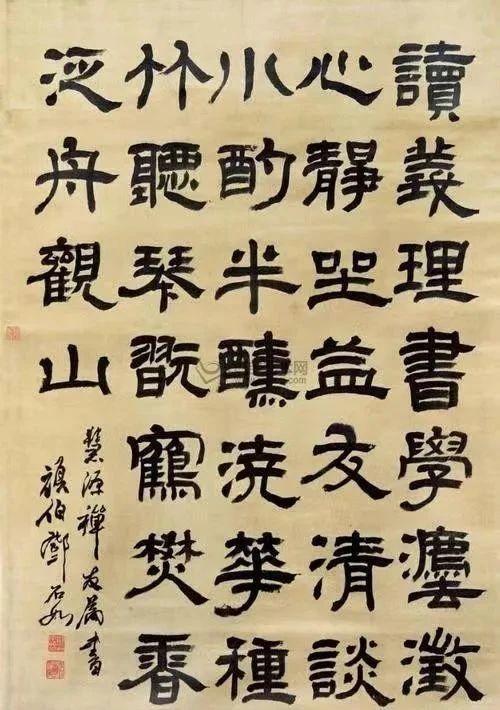 讀義理書學灋澂
心靜坐益友清談
小酌半醺澆華種
竹聽琴翫鶴焚香
泛舟觀山
源禪友屬書
頑伯鄧石如
网
.com